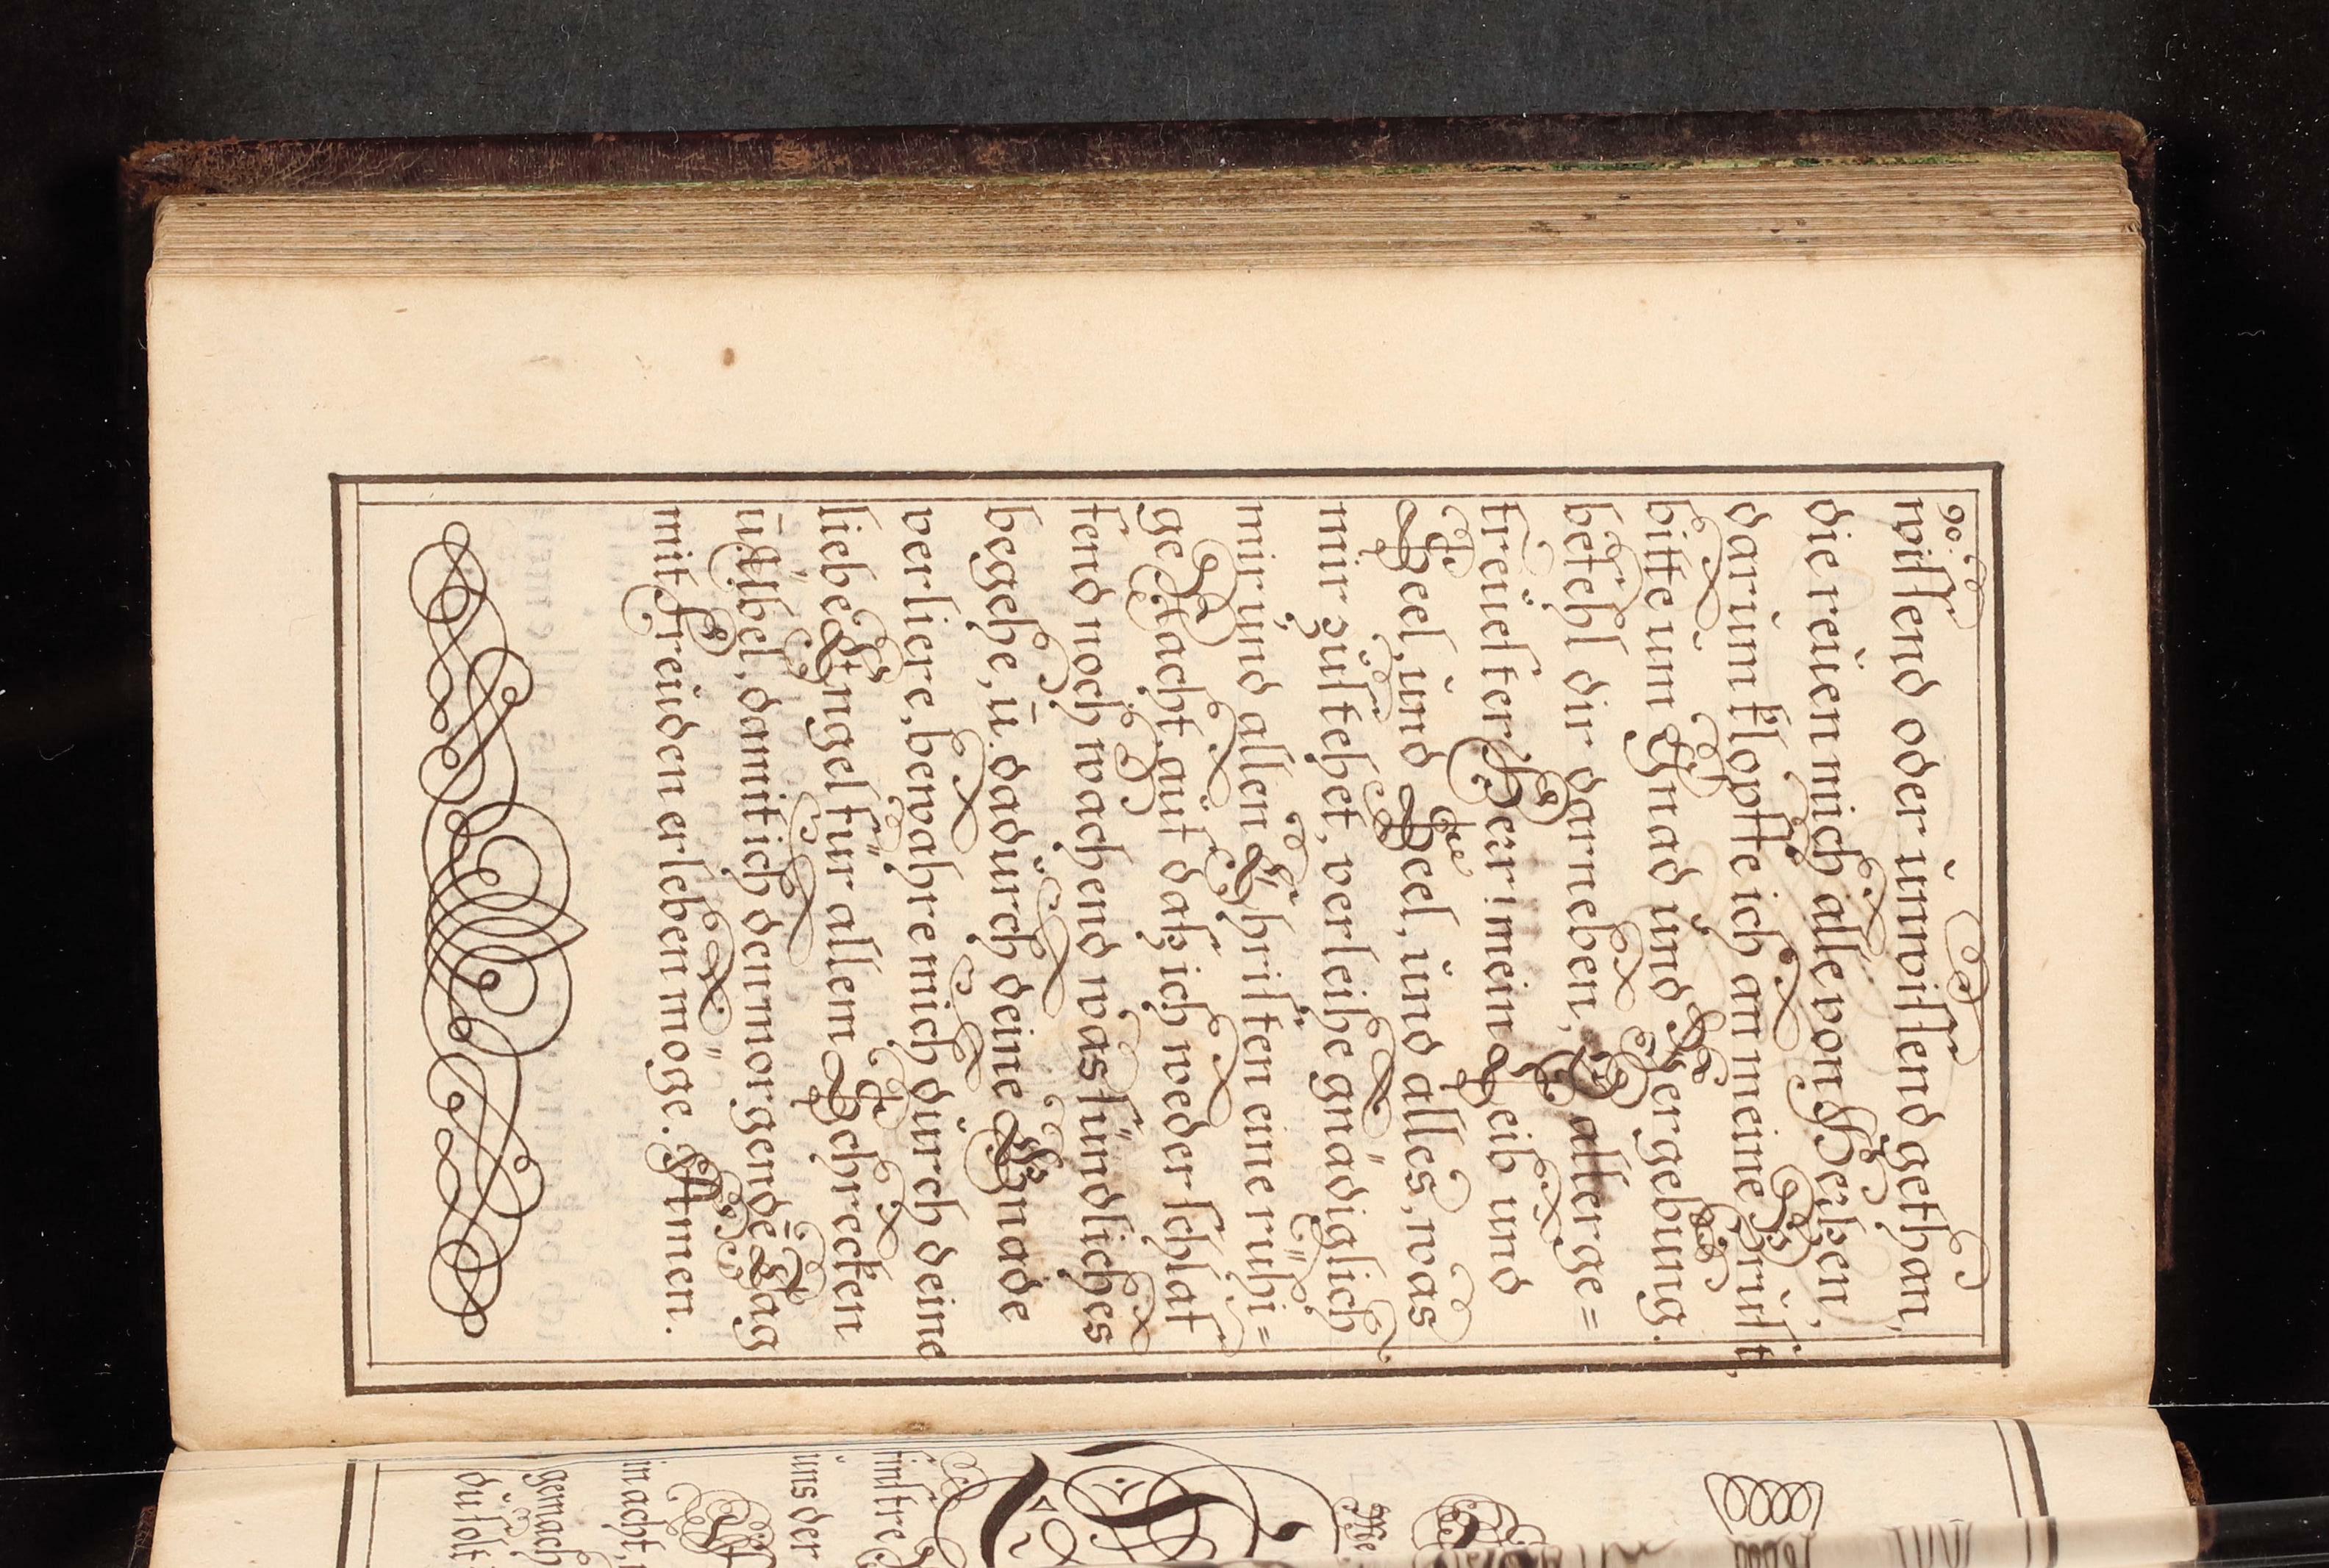 90.
wissend oder ùnwissend gethan,
die reüen mich alle von Hertzen,
darùm klopffe ich an meine Brùst,
bitte ùm Gnad ùnd Vergebung.
befehl dir darneben, O allerge=
treüester Herr! mein Leib und
Seel, ùnd Seel, ùnd alles, was
mir züstehet, verleihe gnädiglich
mir ùnd allen Christen eine rühi=
ge Nacht, aüf daß ich weder schlaf
fend noch wachend was sündliches
begehe, ū. dadürch deine Gnade
verliere, bewahre mich dürch deine
liebe Engel für allem Schrecken
ū. Übel, damit ich den morgendē Tag
mit Freüden erleben möge. Amen.
finstre
ùns der
macht,
gemach
du solt